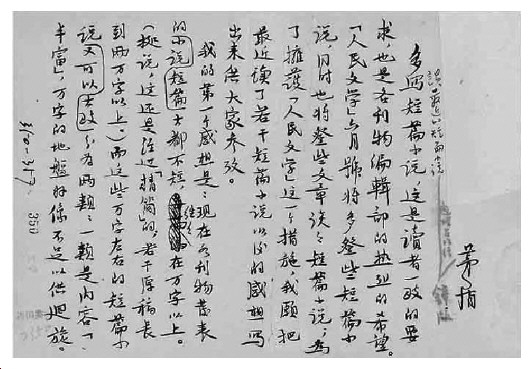 茅盾
多写短篇小说，这是讀者一致的要
求，也是各刊物编輯部的热烈的希望。
「人民文学」六月號将多登些短篇小
说，同时也将登些文章谈谈短篇小说；为
了擁護「人民文学」这一个措施，我願把
最近读了若干短篇小说以后的感想写
出来供大家参攷。
我的第一个感想是：现在各刊物发表
的小说短篇都不短，往往在万字以上。
（据说，这还是经过「精简」的，若干原稿长
到两万字以上。）而这些万字左右的短篇小
说又可以大致分为两類：一類是内容「
丰富」，万字的地盤好像不足以供迴旋。
310-317 350